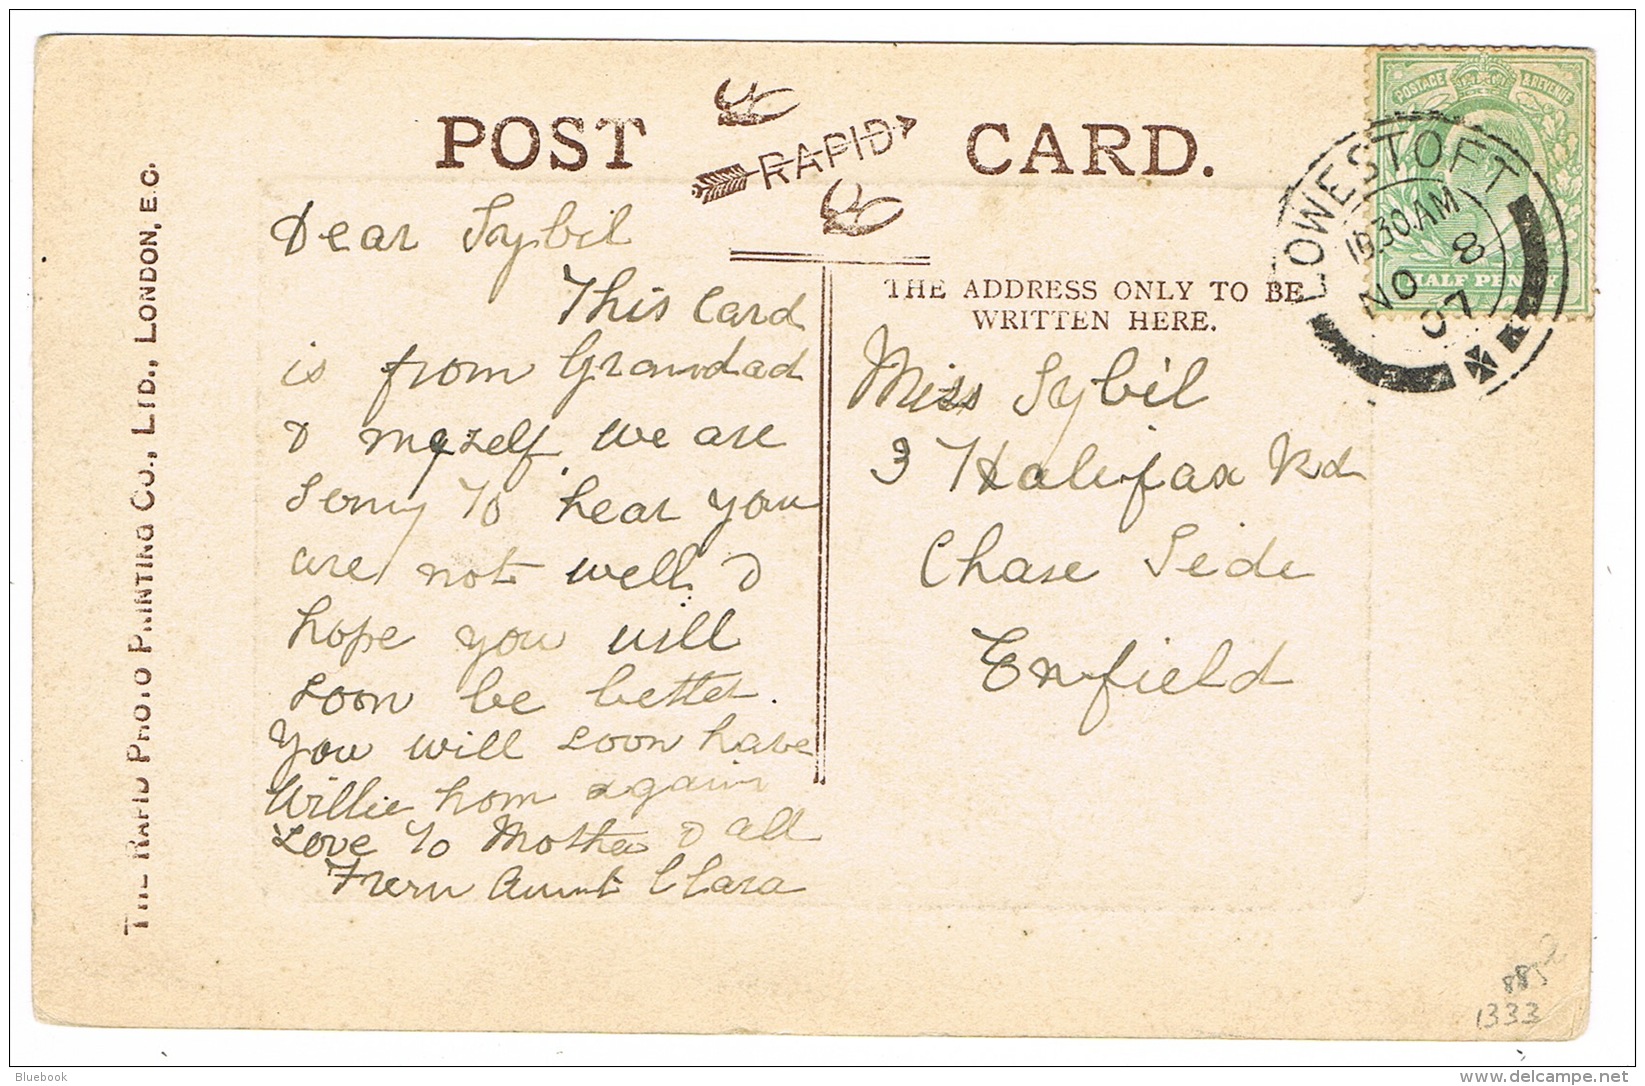 POST RAPID CARD.
THE RAPID PHOTO PRINTING CO., LTD., LONDON, E.C.
Dear Sybil
This Card
is from Grandad
& myself, we are
sorry to hear you
are not well &
hope you will
soon be better.
You will soon have
Willie hom again
Love to Mother & all
From Aunt Clara
THE ADDRESS ONLY TO BE
WRITTEN HERE.
Miss Sybil
3 Halifax Rd
Chase Side
Enfield
POSTAGE & REVENUE
HALF PEN
LOWESTOFT
10.30.AM
NO 8
07
1333
Bluebook
delcampe.net